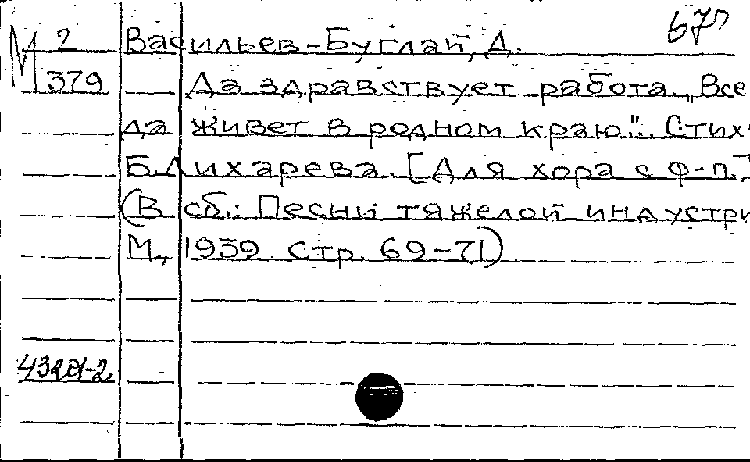 677
М 2 Васильев-Буглай, Д.
379 Да здравствует работа „Все
да живет в родном краю". Стих
Б. Лихарева. [Для хора с ф-п.]
(В сб.: Песни тяжелой индустри
М., 1939. Стр. 69-71)